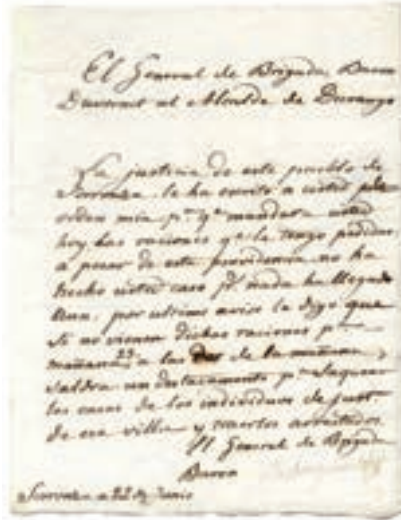 El General de Brigada Baron
Duvernet al Alcalde de Durango
La justicia de este pueblo de
le ha escrito a usted por
orden mia pa qe mandara usted
hoy las raciones qe le tengo pedidas
a pesar de esta providencia no ha
hecho usted caso ps nada ha llegado
aun. por ultimo aviso le digo que
si no vienen dichas raciones pa
mañana 23 a las dos de la mañana,
saldra un destacamento pa saquear
las casas de los individuos de just
de esa villa y traerlos arrestados
El General de Brigada
Baron
a 22 de Junio